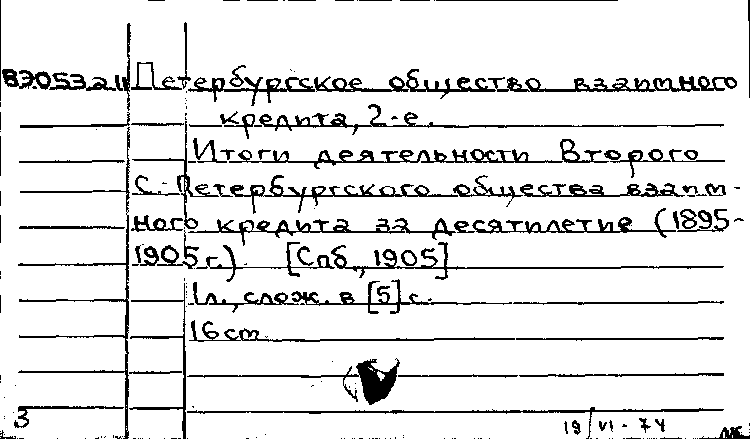 Петербургское общество взаимного
кредита, 2-е.
Итоги деятельности Второго
С.-Петербургского общества взаим-
ного кредита за десятилетие (1895-
1905 г.) [Спб., 1905]
1 л., слож. в [5] с.
16 ст.
3
19/VI-74